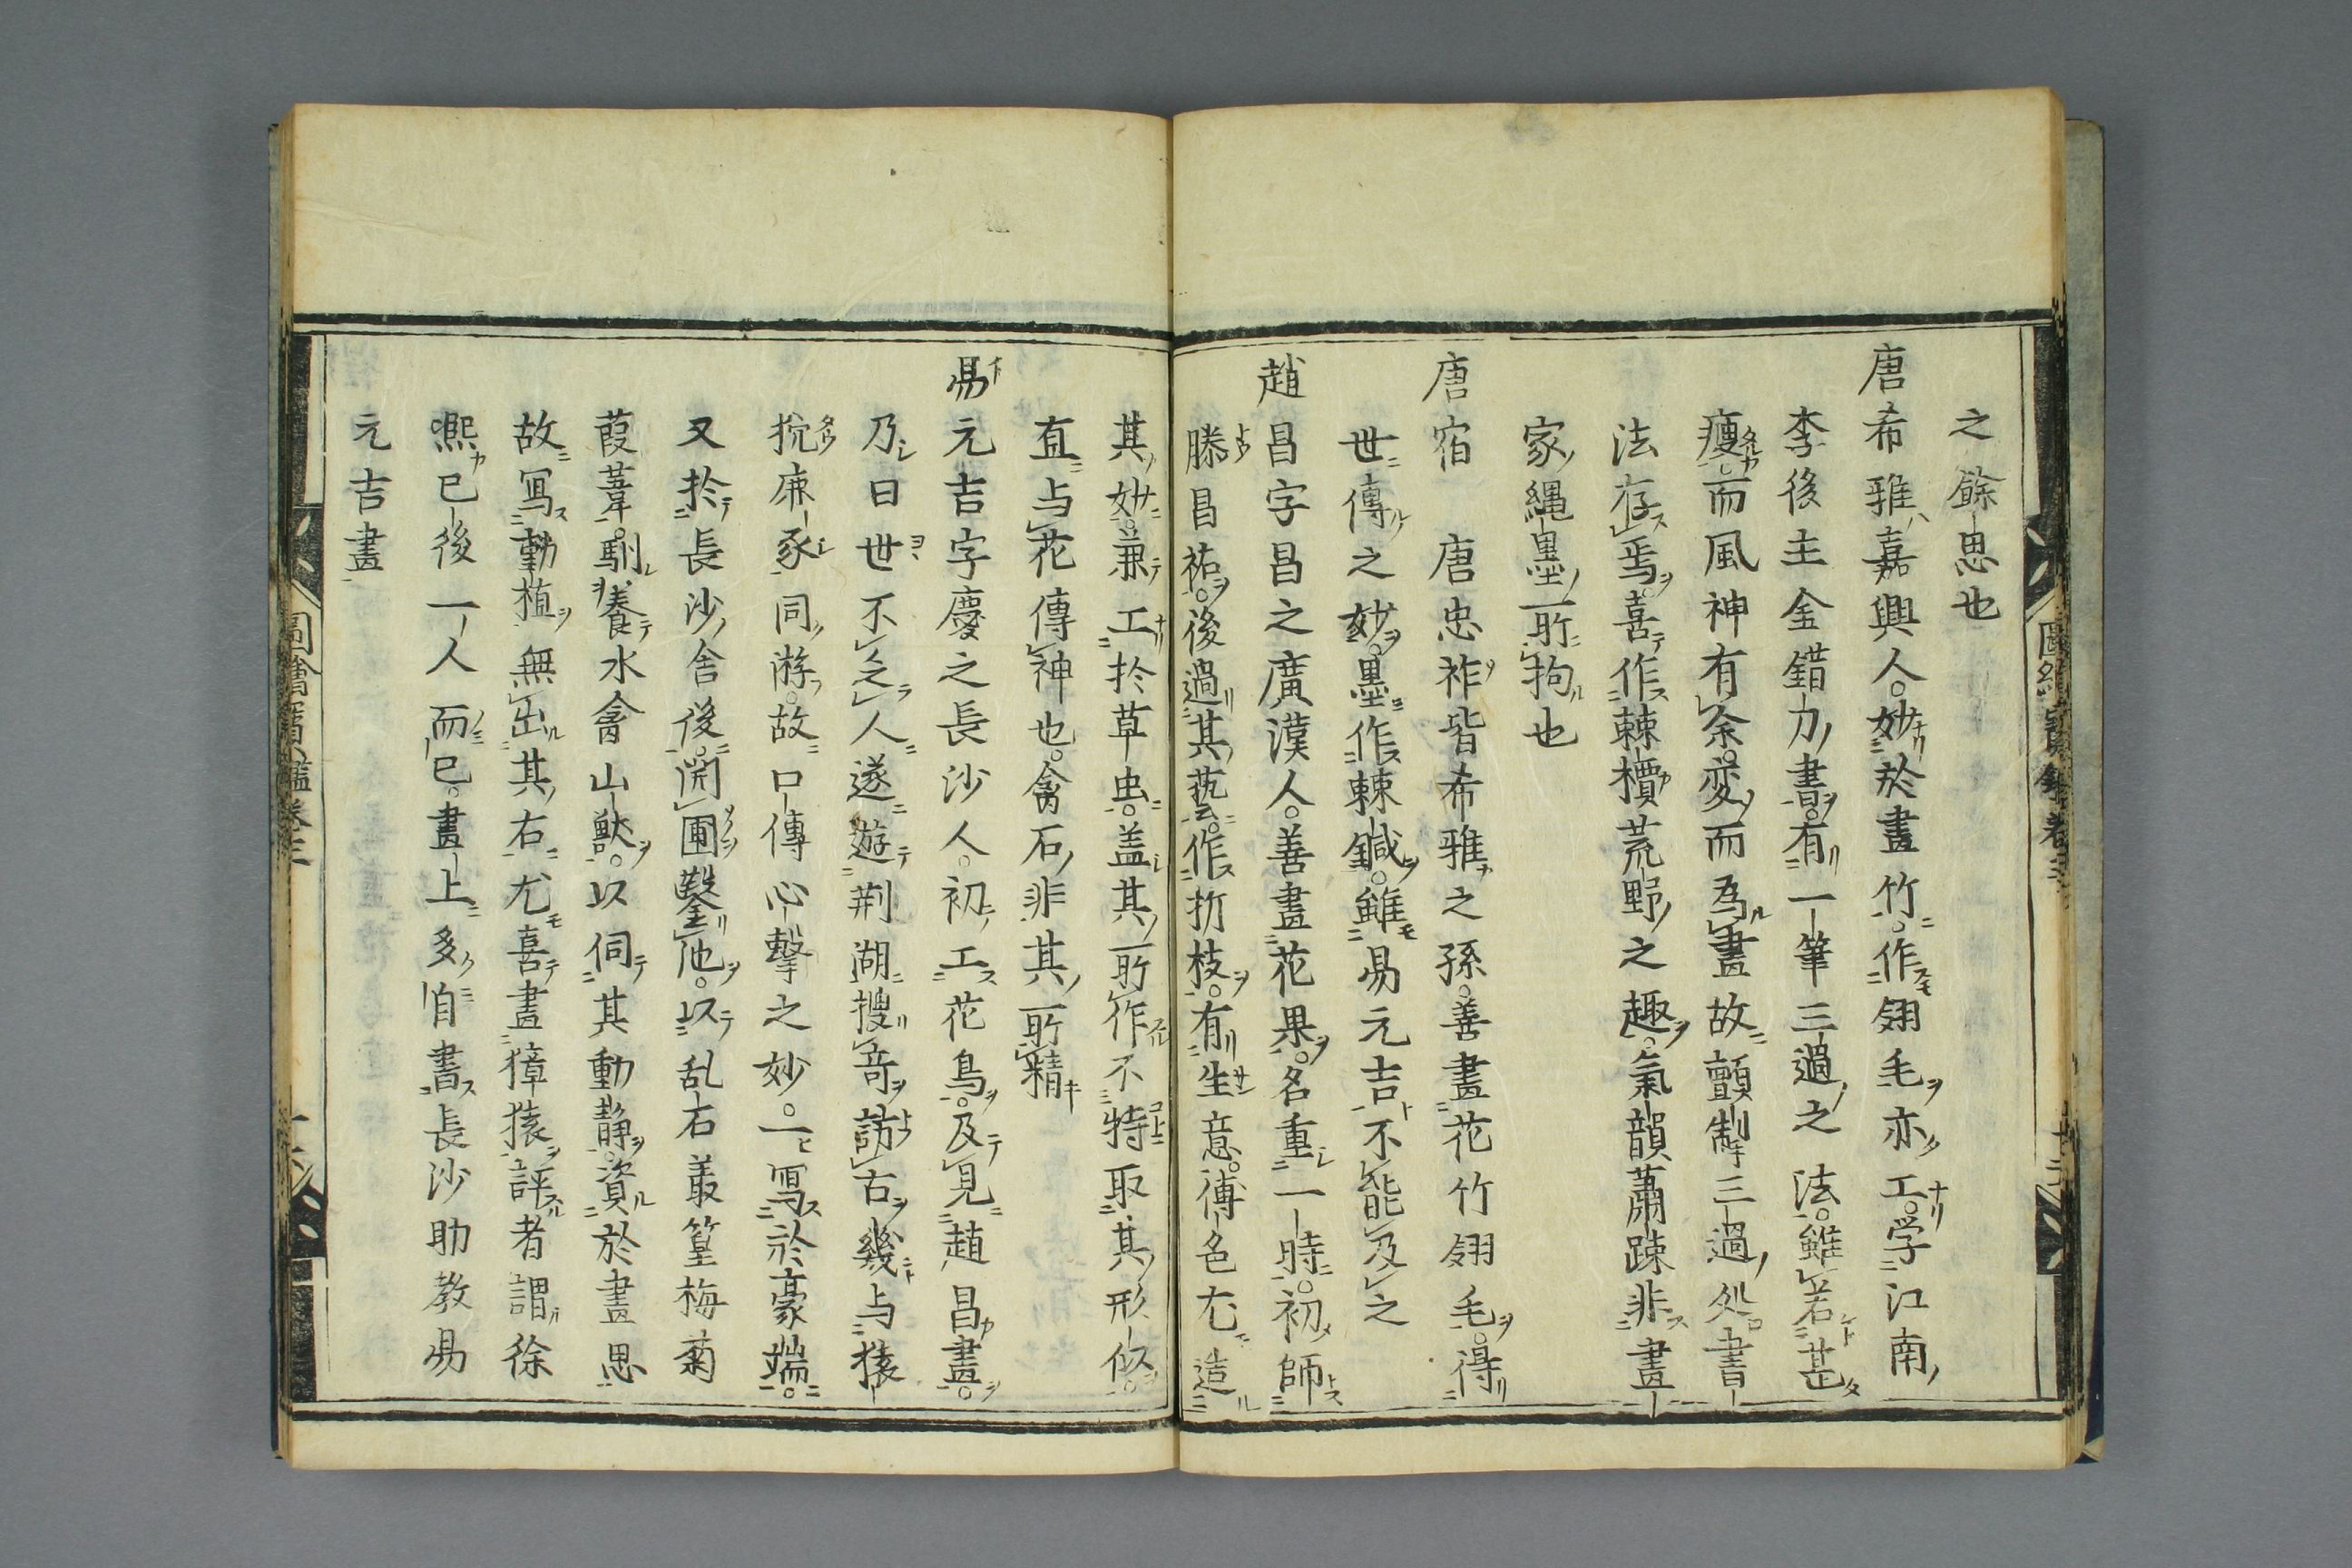 之餘思也
唐希雅嘉興人。妙於畫竹。作翎毛亦工。学江南
李後主金錯刀書。有一筆三過之法。雖若甚
瘦。而風神有余。変而為畫故顫掣三過処書
法存焉。喜作棘櫝荒野之趣。氣韻蕭踈非畫
家縄墨所拘也
唐宿 唐忠祚皆希雅之孫。善畫花竹翎毛。得
世傳之妙。墨作棘鍼。雖易元吉不能及之
趙昌字昌之廣漢人。善畫花果。名重一時。初師
滕昌祐。後過其藝。作折枝。有生意。傅色尤造
其妙。兼工於草虫。盖其所作不特取其形似。
直与花傳神也。禽石非其所精
易元吉字慶之長沙人。初工花鳥。及見趙昌畫。
乃曰世不乏人遂遊荆湖搜竒訪古幾与猿
狖鹿豕同游。故口傳心擊之妙。一寫於豪端。
又於長沙舎後。開圃鑿池。以乱石叢篁梅菊
葭葦。馴養水禽山獣。以伺其動静。資於畫思
故寫動植無出其右。尤喜畫獐猿。評者謂徐
熈已後一人而已。畫上多自書長沙助教易
元吉畫
圖繪寳鑑卷三